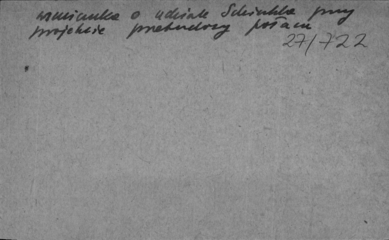 wzmianka o udziale Schinkla przy
projekcie przebudowy pałacu
27/722